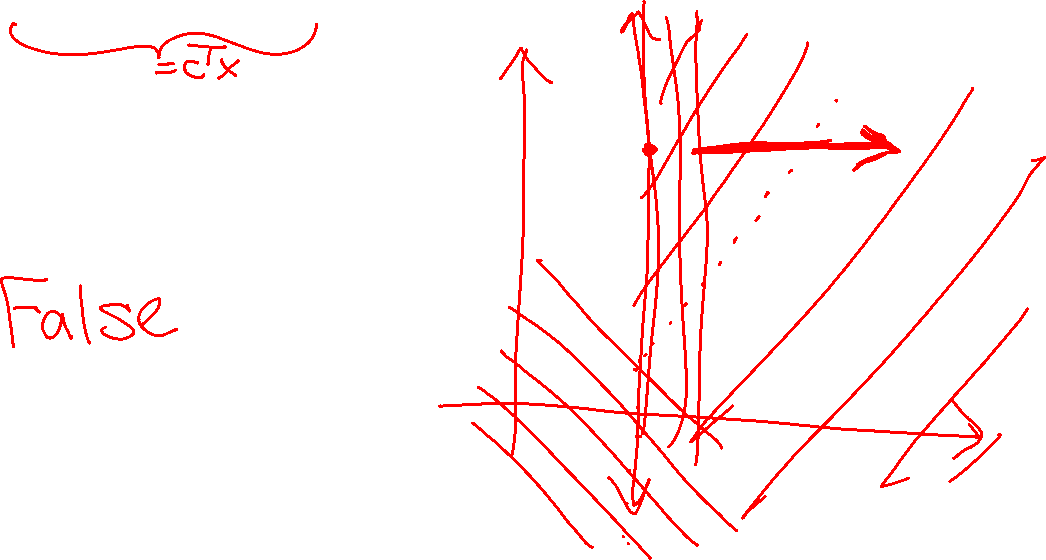 =cᵀx
False